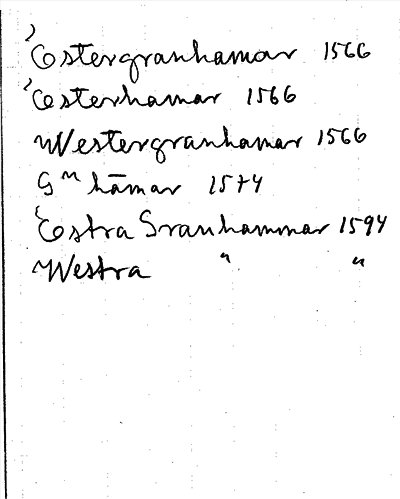 Östergranhamar 1566
Österhamar 1566
Westergranhamar 1566
G n hāmar 1574
Östra Granhammar 1594
Westra " "